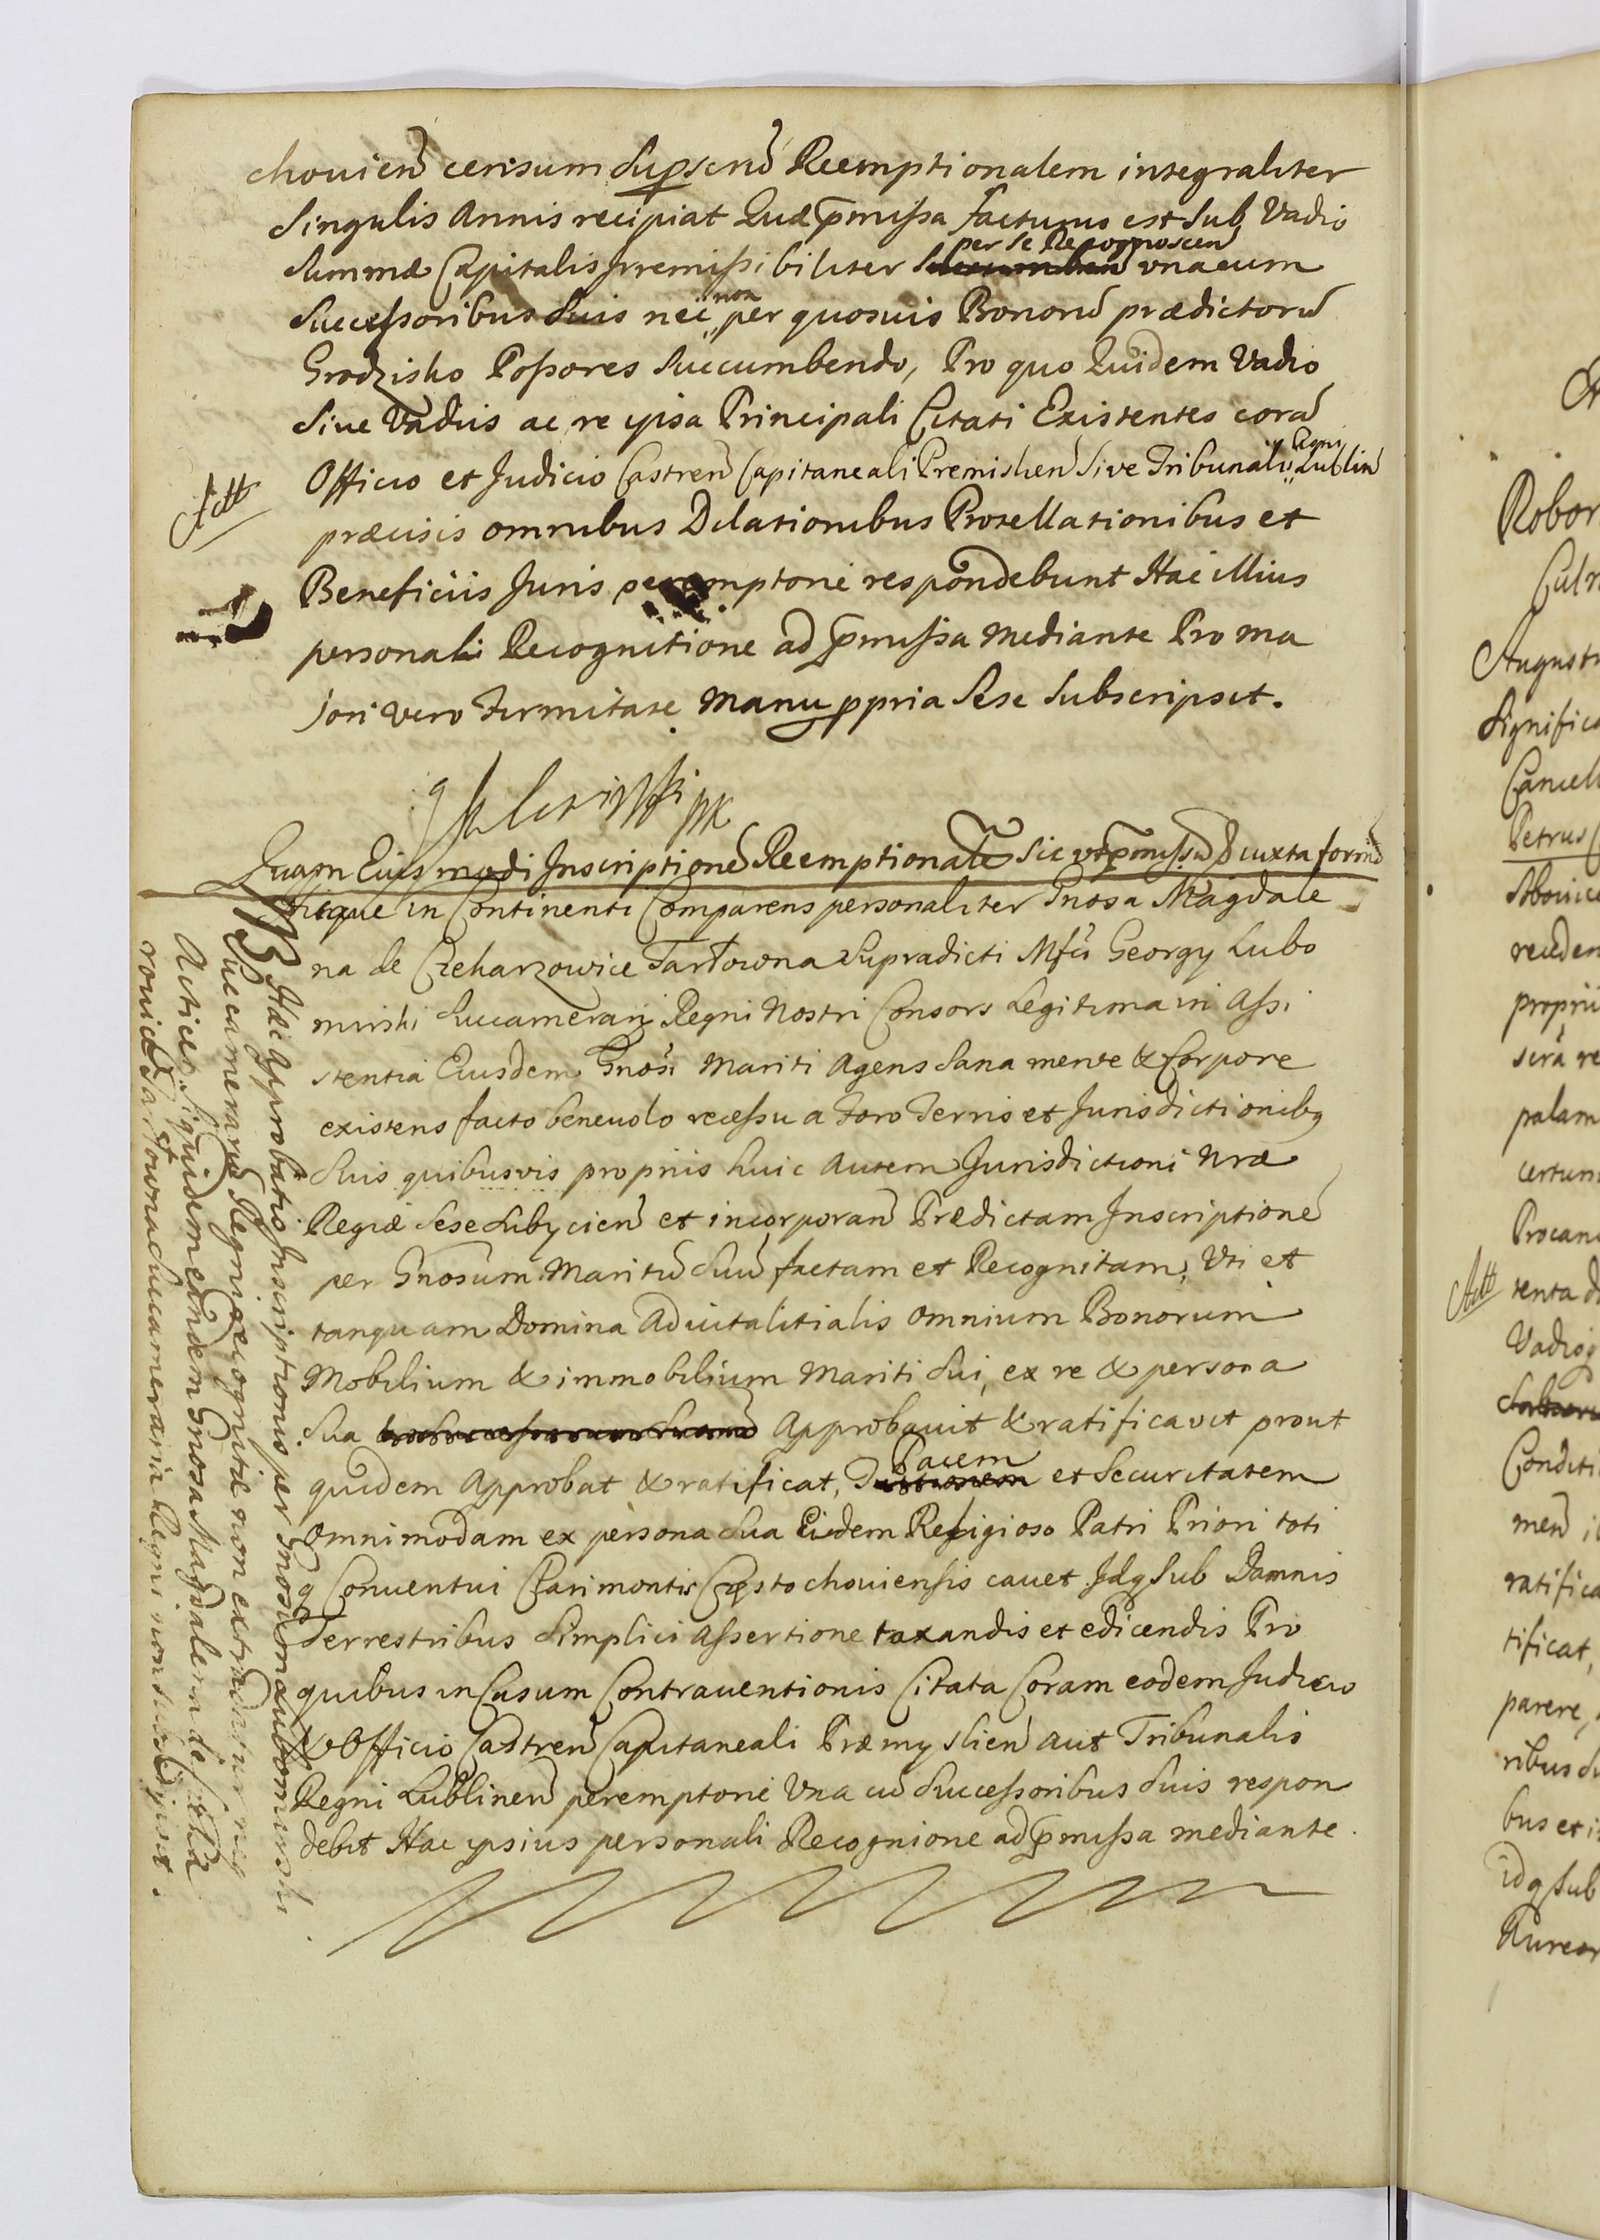 chovien̄ censum supscrip̄ Reemptionalem integraliter
Singulis Annis recipiat Quæ p̄missa facturus est sub Vadio
Summæ Capitalis Irremissibiliter per se Recognoscen̄ vnacum
Successoribus Suis nec non per quosuis Bonorū prædictorū
Grodzisko Possores Succumbendo, Pro quo Quidem Vadio
Siue Vadiis ac re ipsa Principali Citati Existentes corā
Officio et Judicio Castren̄ Capitaneali Premislien̄ Sive Tribunalis Regni Lublin̄
præcisis omnibus Dilationibus Prosellationibus et
Beneficiis Juris peremptorie respondebunt Hac illius
personali Recognitione ad p̄missa Mediante Pro ma
jori vero Firmitate Manu ppria Sese Subscripsit.
Quam Eiusmodi Inscriptionē Reemptionalē Sic vt p̄missū & iuxta formā
hicque in Continenti Comparens personaliter Gnosa Magdale
na de Czekarzowice Tarłowna Supradicti Mfci Georgy Lubo
mirski Succamerarij Regni Nostri Consors Legitima in Assi
stentia Eiusdem Gnosi Mariti Agens Sana mente & Corpore
existens facto beneuolo recessu a Foro Terris et Jurisdictionibq
Suis quibusvis propriis huic Autem Jurisdictioni Nræ
Regiæ Sese Subycien̄ et incorporan̄ Prædictam Inscriptionē
per Gnosum Maritū Suū factam et Recognitam, Vti et
tanquam Domina Aduitalitialis omnium Bonorum
Mobilium & immobilium Mariti Sui, ex re & persona
Sua Approbauit & ratificavit prout
quidem Approbat & ratificat, Pacem et Securitatem
Omnimodam ex persona Sua Eidem Religioso Patri Priori toti
q Conuentui Clarimontis Częstochouiensis cauet Idq Sub Damnis
Terrestribus Simplici Assertione taxandis et edicendis Pro
quibus in Casum Contrauentionis Citata Coram eodem Judicio
& Officio Castren̄ Capitaneali Præmyslien̄ aut Tribunalis
Regni Lublinen̄ peremptorie Vna cū Successoribus Suis respon
debit Hac ipsius personali Recognione ad p̄missa mediante.
NB Hæc Approbatio Inscriptionis per Gnosū Lubomirski
Succamerariū Regni recognitæ non extradatur nec
Acticet̄, Siquidem eandem Gnosa Magdalena de
Tarłowna Succameraria Regni non subscripsit.
Actt
Robor
Augustu
Significa
Cancell
Petrus
propri
será re
palam
certum
Actt
tenta
Vadioq
Conditi
ratifica
tificat,
parere,
ribus su
bus et i
idq Sub
Aureor